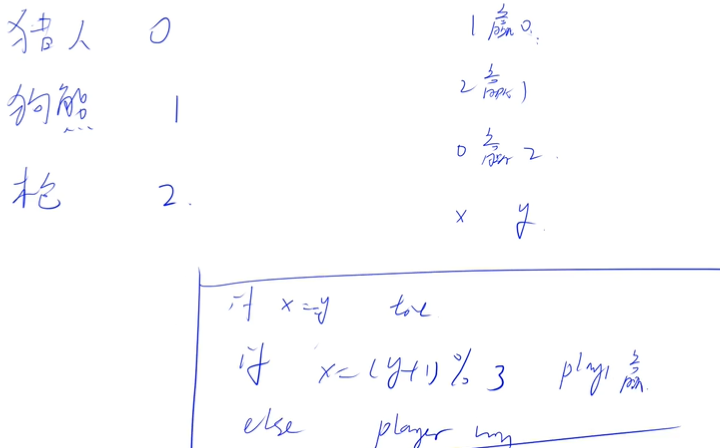 猎人 0
狗熊 1
枪 2.
1 赢 0.
2 赢 1
0 赢 2.
x y
if x==y tie
if x=(y+1)%3 play1 赢
else player